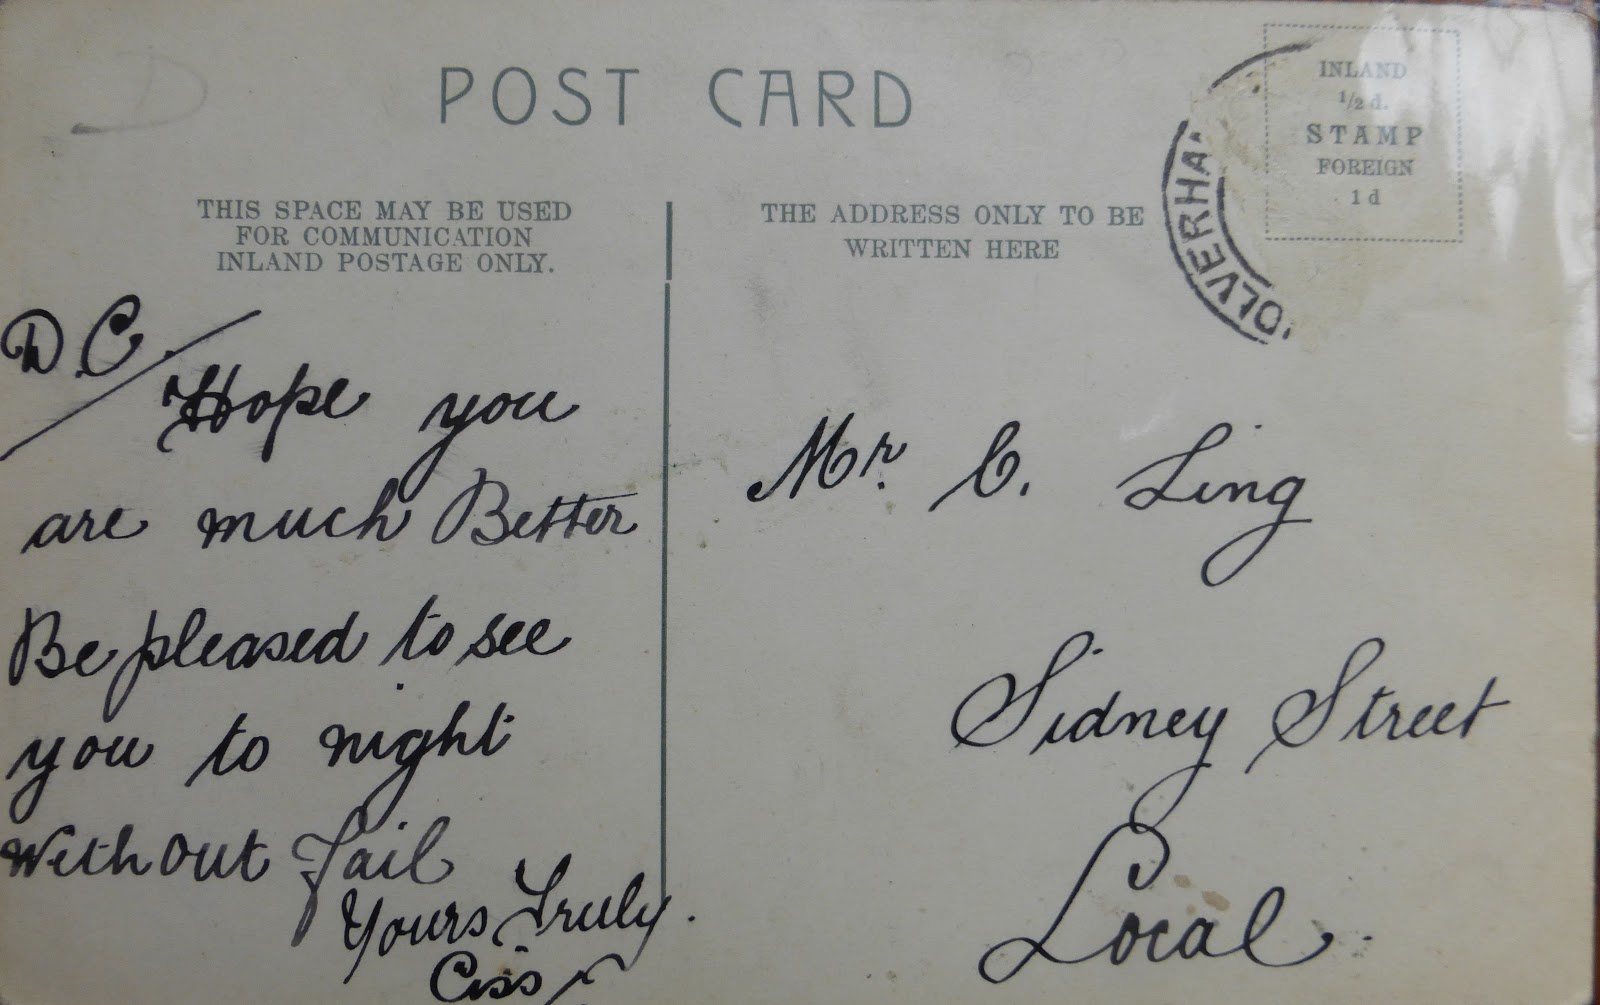 POST CARD
INLAND
1/2 d.
STAMP
FOREIGN
1 d
OLVERHA
THIS SPACE MAY BE USED
FOR COMMUNICATION
INLAND POSTAGE ONLY.
THE ADDRESS ONLY TO BE
WRITTEN HERE
D
D.C.
Hope you
are much Better
Be pleased to see
you to night
without fail
Yours Truly.
Ciss
Mr. C. Ling
Sidney Street
Local